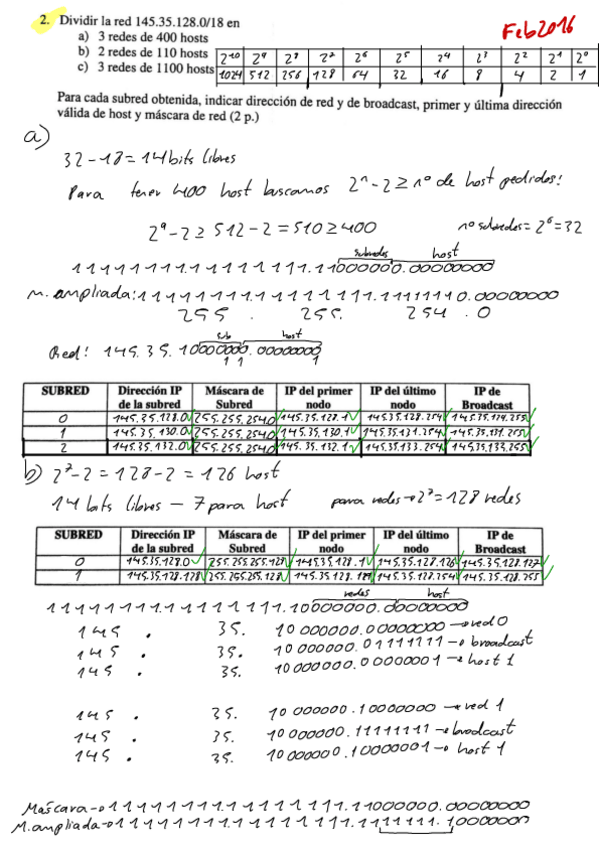 2. Dividir la red 145.35.128.0/18 en
Feb2016
a) 3 redes de 400 hosts
b) 2 redes de 110 hosts
c) 3 redes de 1100 hosts
2¹⁰ 2⁹ 2⁸ 2⁷ 2⁶ 2⁵ 2⁴ 2³ 2² 2¹ 2⁰
1024 512 256 128 64 32 16 8 4 2 1
Para cada subred obtenida, indicar dirección de red y de broadcast, primer y última dirección
válida de host y máscara de red (2 p.)
a)
32-18=14 bits libres
Para tener 400 host buscamos 2ⁿ-2 ≥ nº de host pedidos!
2⁹-2 ≥ 512-2 = 510 ≥ 400 nº subredes = 2⁶ = 32
subredes host
11111111.11111111.11000000.00000000
m. ampliada: 11111111.11111111.11111110.00000000
255 . 255. 254 .0
sub host
Red: 145.35.10000000.00000000
1 1 1
SUBRED Dirección IP de la subred Máscara de Subred IP del primer nodo IP del último nodo IP de Broadcast
0 145.35.128.0 255.255.254.0 145.35.128.1 145.35.128.254 145.35.129.255
1 145.35.130.0 255.255.254.0 145.35.130.1 145.35.131.254 145.35.131.255
2 145.35.132.0 255.255.254.0 145.35.132.1 145.35.133.254 145.35.133.255
b) 2⁷-2 = 128-2 = 126 host
14 bits libres — 7 para host para redes → 2⁷ = 128 redes
SUBRED Dirección IP de la subred Máscara de Subred IP del primer nodo IP del último nodo IP de Broadcast
0 145.35.128.0 255.255.255.128 145.35.128.1 145.35.128.126 145.35.128.127
1 145.35.128.128 255.255.255.128 145.35.128.129 145.35.128.254 145.35.128.255
redes host
11111111.11111111.10000000.00000000
145 . 35. 10000000.00000000 → red 0
145 . 35. 10000000.01111111 → broadcast
145 . 35. 10000000.00000001 → host 1
145 . 35. 10000000.10000000 → red 1
145 . 35. 10000000.11111111 → broadcast
145 . 35. 10000000.10000001 → host 1
Máscara → 11111111.11111111.11000000.00000000
M. ampliada → 11111111.11111111.11111111.10000000